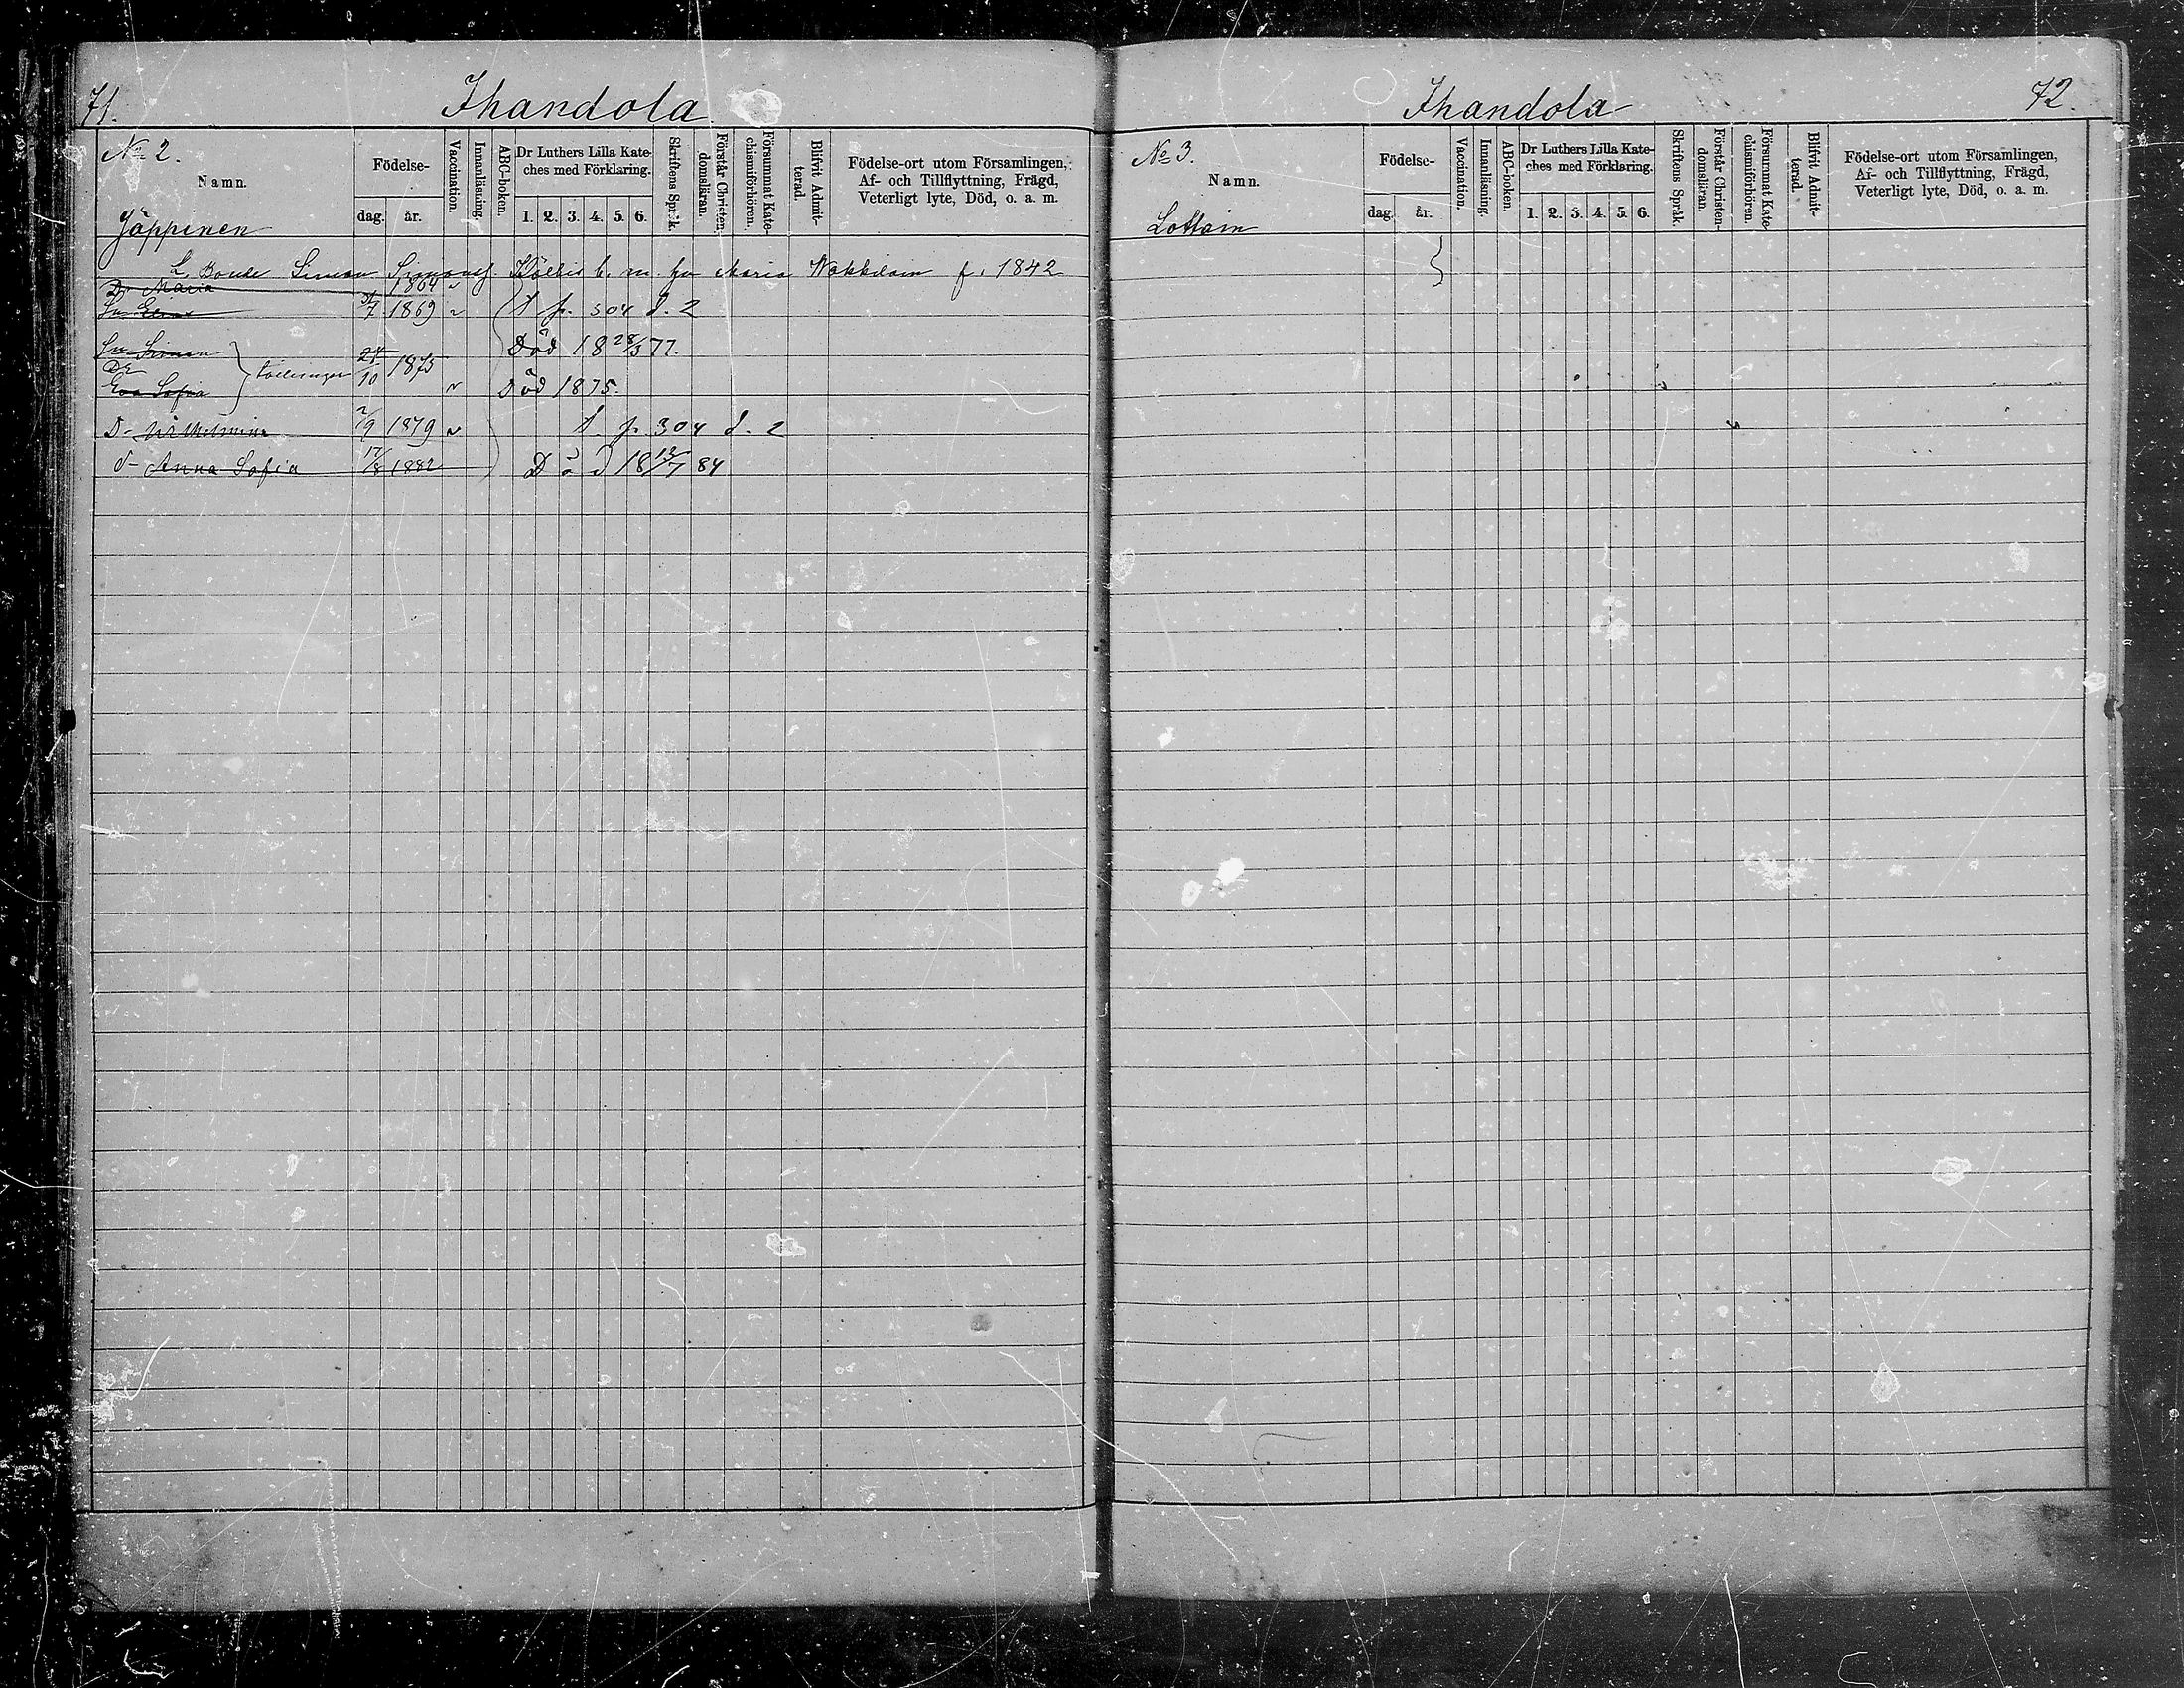 71.
Ihandola
No 2.
Namn.
Jäppinen
Födelse-
dag.
år.
Vaccination.
Innanläsning.
ABC-boken.
Dr Luthers Lilla Kate-
ches med Förklaring.
1. 2. 3. 4. 5. 6.
Skriftens Språk.
Förstår Christen-
domsläran.
Försummat Kate-
chismiförhören.
Blifvit Admit-
terad.
Födelse-ort utom Församlingen,
Af- och Tillflyttning, Frägd,
Veterligt lyte, Död, o. a. m.
L. Bonde Simon Simonss. b. m. hu Maria f. 1842
Dr Maria 1864
7 1869 p. 304 d. 2
Sn Simon Död 18 28/3 77.
Dr 24/10 1875
Eva Sofia Död 1875.
D- Wilhelmina 2/9 1879 p. 304 d. 2
d- Anna Sofia 17/8 1882 Död 18 12/7 84
Ihandola
72.
No 3.
Namn.
Lottain
Födelse-
dag.
år.
Vaccination.
Innanläsning.
ABC-boken.
Dr Luthers Lilla Kate-
ches med Förklaring.
1. 2. 3. 4. 5. 6.
Skriftens Språk.
Förstår Christen-
domsläran.
Försummat Kate-
chismiförhören.
Blifvit Admit-
terad.
Födelse-ort utom Församlingen,
Af- och Tillflyttning, Frägd,
Veterligt lyte, Död, o. a. m.